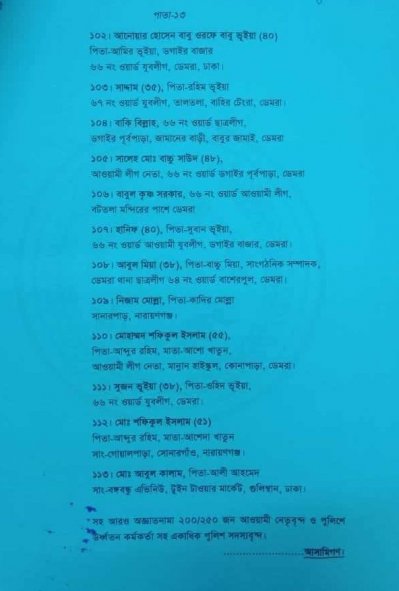 পাতা-১৩
১০২। আনোয়ার হোসেন বাবু ওরফে বাবু ভূইয়া (৪০)
পিতা-আমির ভূইয়া, ডগাইর বাজার
৬৬ নং ওয়ার্ড যুবলীগ, ডেমরা, ঢাকা।
১০৩। সাদ্দাম (৩৫), পিতা-রহিম ভূইয়া
৬৭ নং ওয়ার্ড যুবলীগ, তালতলা, বাহির টেংরা, ডেমরা।
১০৪। বাকি বিল্লাহ, ৬৬ নং ওয়ার্ড ছাত্রলীগ,
ডগাইর পূর্বপাড়া, জামানের বাড়ী, বাবুর জামাই, ডেমরা
১০৫। সালেহ মোঃ বাচ্চু সাউদ (৪৮),
আওয়ামী লীগ নেতা, ৬৬ নং ওয়ার্ড ডগাইর পূর্বপাড়া, ডেমরা
১০৬। বাবুল কৃষ্ণ সরকার, ৬৬ নং ওয়ার্ড আওয়ামী লীগ,
বটতলা মন্দিরের পাশে ডেমরা
১০৭। হানিফ (৪০), পিতা-সুবান ভূইয়া,
৬৬ নং ওয়ার্ড আওয়ামী যুবলীগ, ডগাইর বাজার, ডেমরা।
১০৮। আবুল মিয়া (৩৮), পিতা-বাচ্চু মিয়া, সাংগঠনিক সম্পাদক,
ডেমরা থানা ছাত্রলীগ ৬৪ নং ওয়ার্ড বাশেরপুল, ডেমরা।
১০৯। নিজাম মোল্লা, পিতা-কাদির মোল্লা
সানারপাড়, নারায়ণগঞ্জ।
১১০। মোহাম্মদ শফিকুল ইসলাম (৫৫),
পিতা-আব্দুর রহিম, মাতা-আশো খাতুন,
আওয়ামী লীগ নেতা, মান্নান হাইস্কুল, কোনাপাড়া, ডেমরা।
১১১। সুজন ভূইয়া (৩৮), পিতা-ওহিদ ভূইয়া,
৬৬ নং ওয়ার্ড যুবলীগ, ডেমরা।
১১২। মোঃ শফিকুল ইসলাম (৫১)
পিতা-আব্দুর রহিম, মাতা-আশেদা খাতুন
সাং-গোয়ালপাড়া, সোনারগাঁও, নারায়ণগঞ্জ।
১১৩। মোঃ আবুল কালাম, পিতা-আলী আহমেদ
সাং-বঙ্গবন্ধু এভিনিউ, টুইন টাওয়ার মার্কেট, গুলিস্থান, ঢাকা।
সহ আরও অজ্ঞাতনামা ২০০/২৫০ জন আওয়ামী নেতৃবৃন্দ ও পুলিশে
উর্ধ্বতন কর্মকর্তা সহ একাধিক পুলিশ সদস্যবৃন্দ।
.............................আসামিগণ।